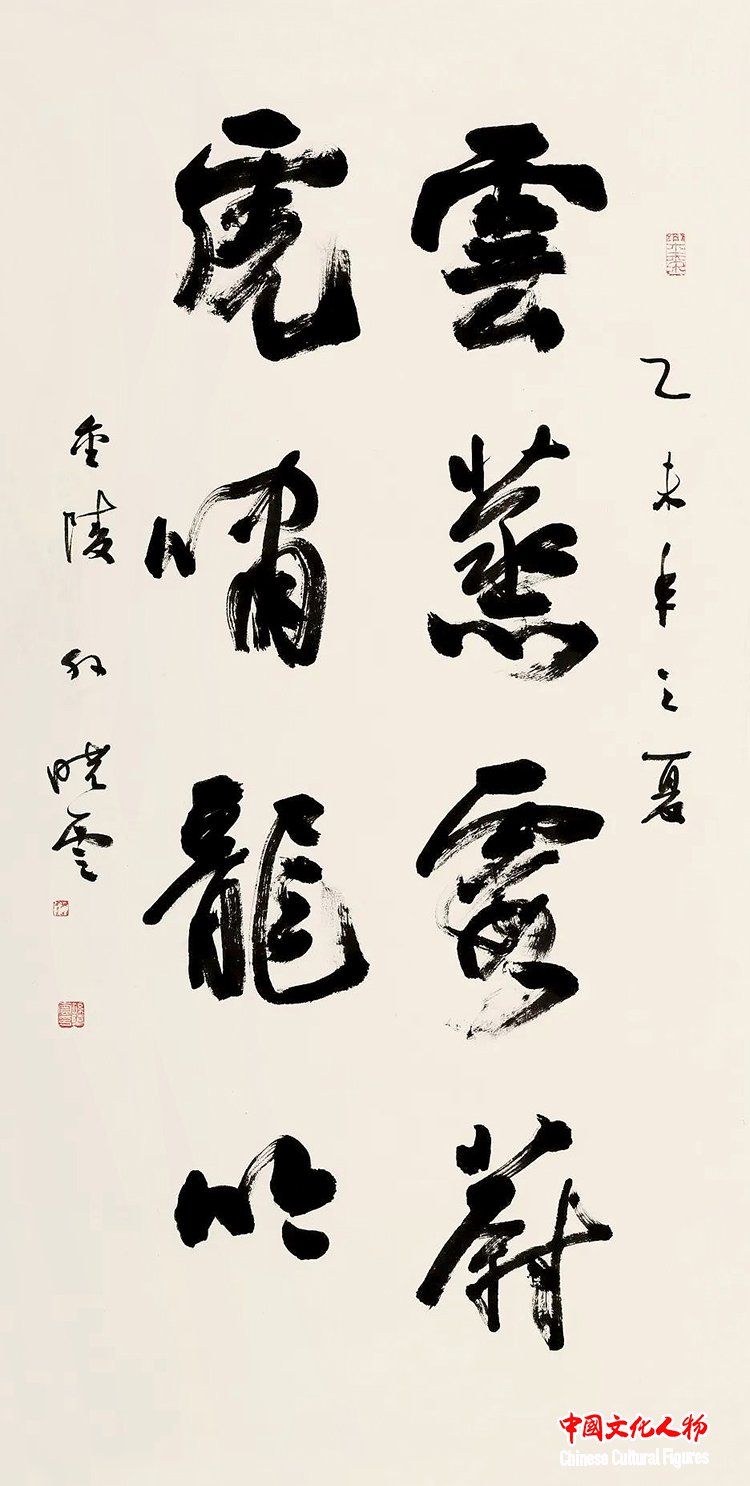 乙未年之夏
雲蒸霞蔚
虎嘯龍吟
金陵 孫曉雲
中國文化人物
Chinese Cultural Figures